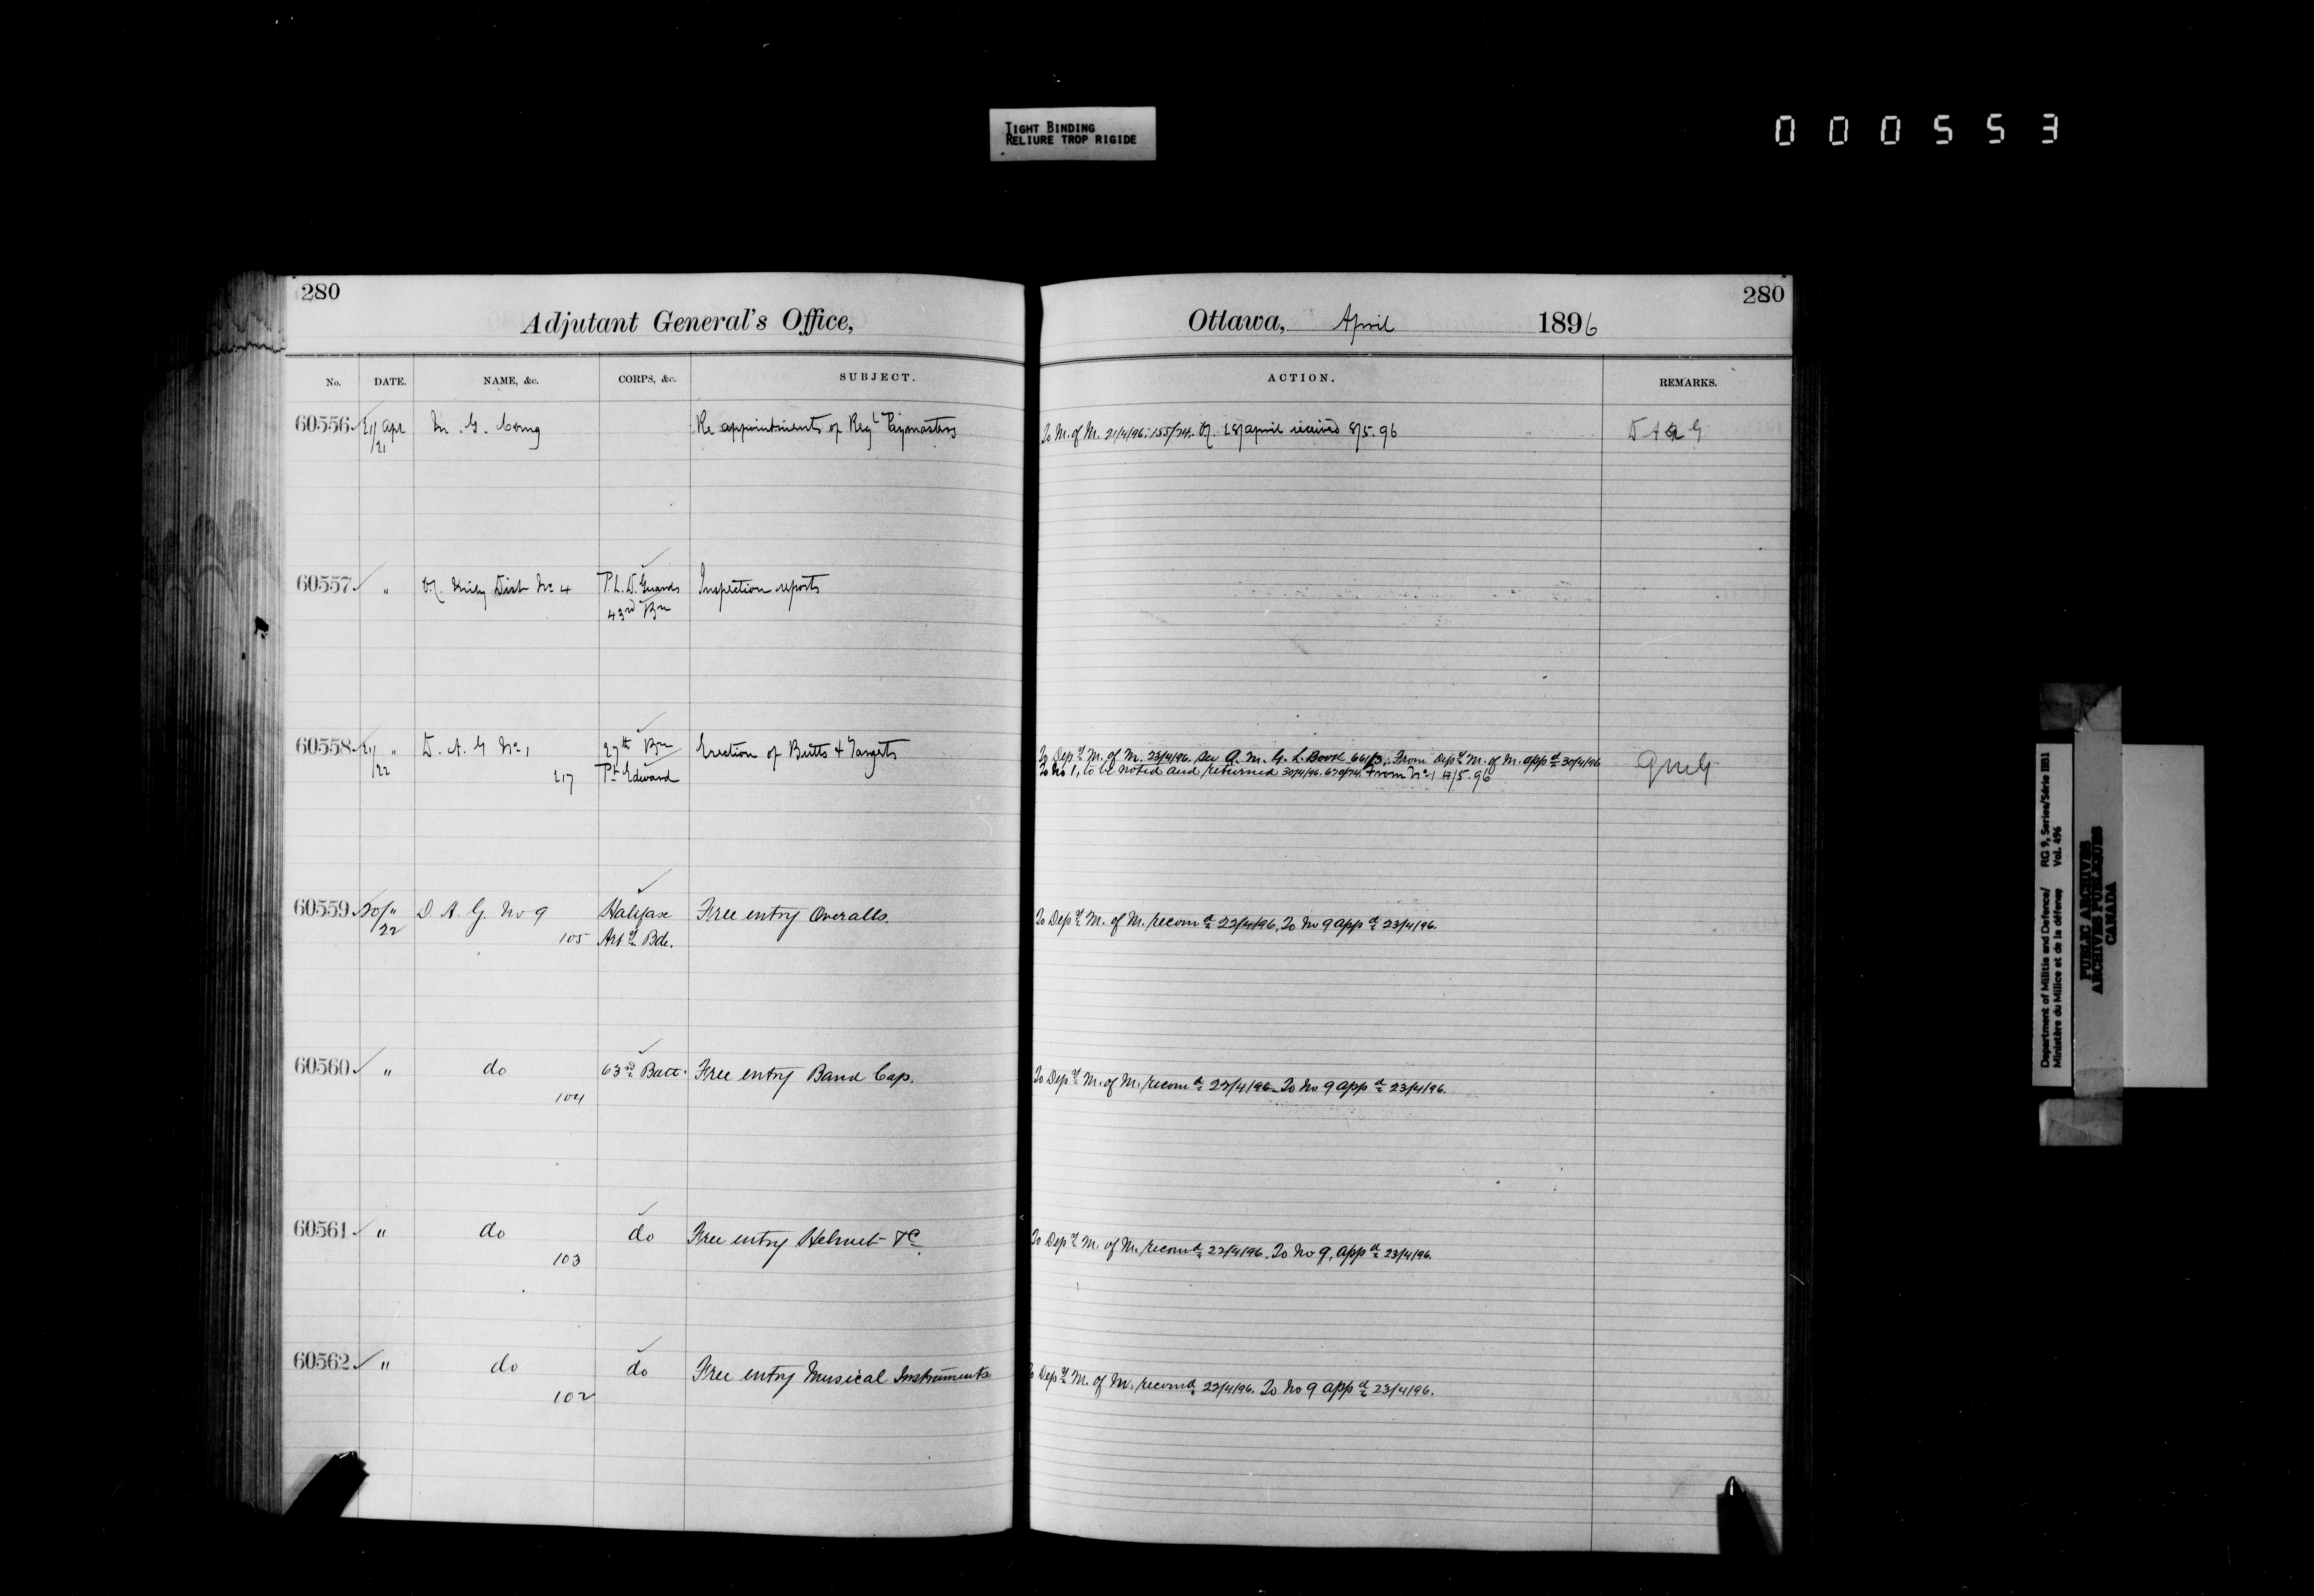 TIGHT BINDING
RELIURE TROP RIGIDE
000553
280
Adjutant General's Office,
No. DATE. NAME, &c. CORPS, &c. SUBJECT.
60556 21/ Apl M. G. Comg Re appointments of Regl Paymasters
/21
60557 " Dist No 4 P.L.D. Guards Inspection reports
43rd Bn
60558 21/ " D. A. G No 1 27th Bn Erection of Butts & Targets
/22 217 Pt Edward
60559 20/ " D A. G. No 9 Halifax Free entry Overalls.
/22 105 Arty Bde.
60560 " do 63rd Batt. Free entry Band Cap.
104
60561 " do do Free entry Helmet &c.
103
60562 " do do Free entry Musical Instruments
102
280
Ottawa, April 1896
ACTION. REMARKS.
To M. of M. 21/4/96. 155/74. 28/april received 8/5.96 D A A G
To Depy M. of M. 23/4/96. See Q. M. G. L. Book From Depy M. of M. appd 30/4/96
To No 1, to be noted and returned 30/4/96. 670/74. From No 1 4/5.96 QMG
To Depy M. of M. recomd 22/4/96. To No 9 appd 23/4/96.
To Depy M. of M. recomd 22/4/96. To No 9 appd 23/4/96.
To Depy M. of M. recomd 22/4/96. To No 9, appd 23/4/96.
To Depy M. of M. recomd 22/4/96. To No 9 appd 23/4/96.
Department of Militia and Defence/ RG 9, Series/Série IIB1
Ministère du Milice et de la défense Vol. 496
PUBLIC ARCHIVES
ARCHIVES PUBLIQUES
CANADA